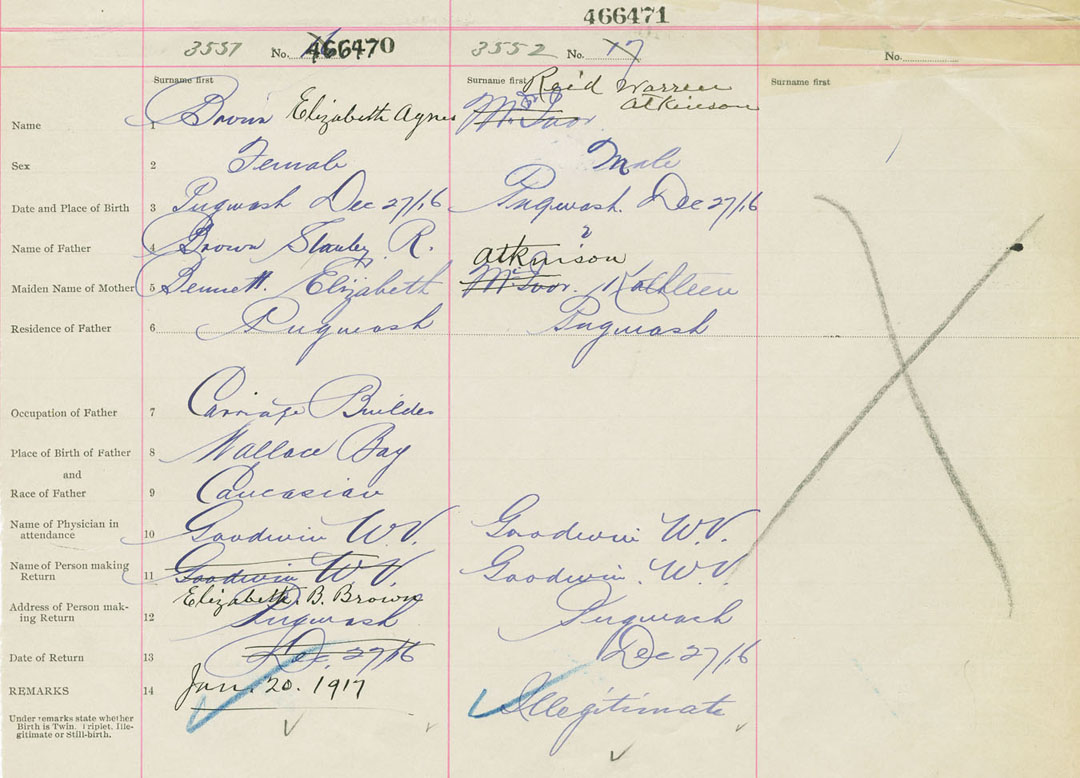 466471
3551 No. 466470 3552 No. 17 No.
Surname first Surname first Surname first
Reid Warren
Atkinson
Name 1 Brown Elizabeth Agnes McIvor
Sex 2 Female Male
Date and Place of Birth 3 Pugwash Dec 27/16 Pugwash. Dec 27/16
Name of Father 4 Brown Stanley R. ?
Atkinson
Maiden Name of Mother 5 Bennett. Elizabeth McIvor. Kathleen
Residence of Father 6 Pugwash Pugwash
Occupation of Father 7 Carriage Builder
Place of Birth of Father 8 Wallace Bay
and
Race of Father 9 Caucasian
Name of Physician in
attendance 10 Goodwin W.V. Goodwin W.V.
Name of Person making
Return 11 Goodwin W.V. Goodwin. W.V
Elizabeth. B. Brown
Address of Person mak-
ing Return 12 Pugwash Pugwash
Date of Return 13 Dec. 27/16 Dec 27/16
REMARKS 14 Jan. 20. 1917 Illegitimate
Under remarks state whether
Birth is Twin. Triplet. Ille-
gitimate or Still-birth.